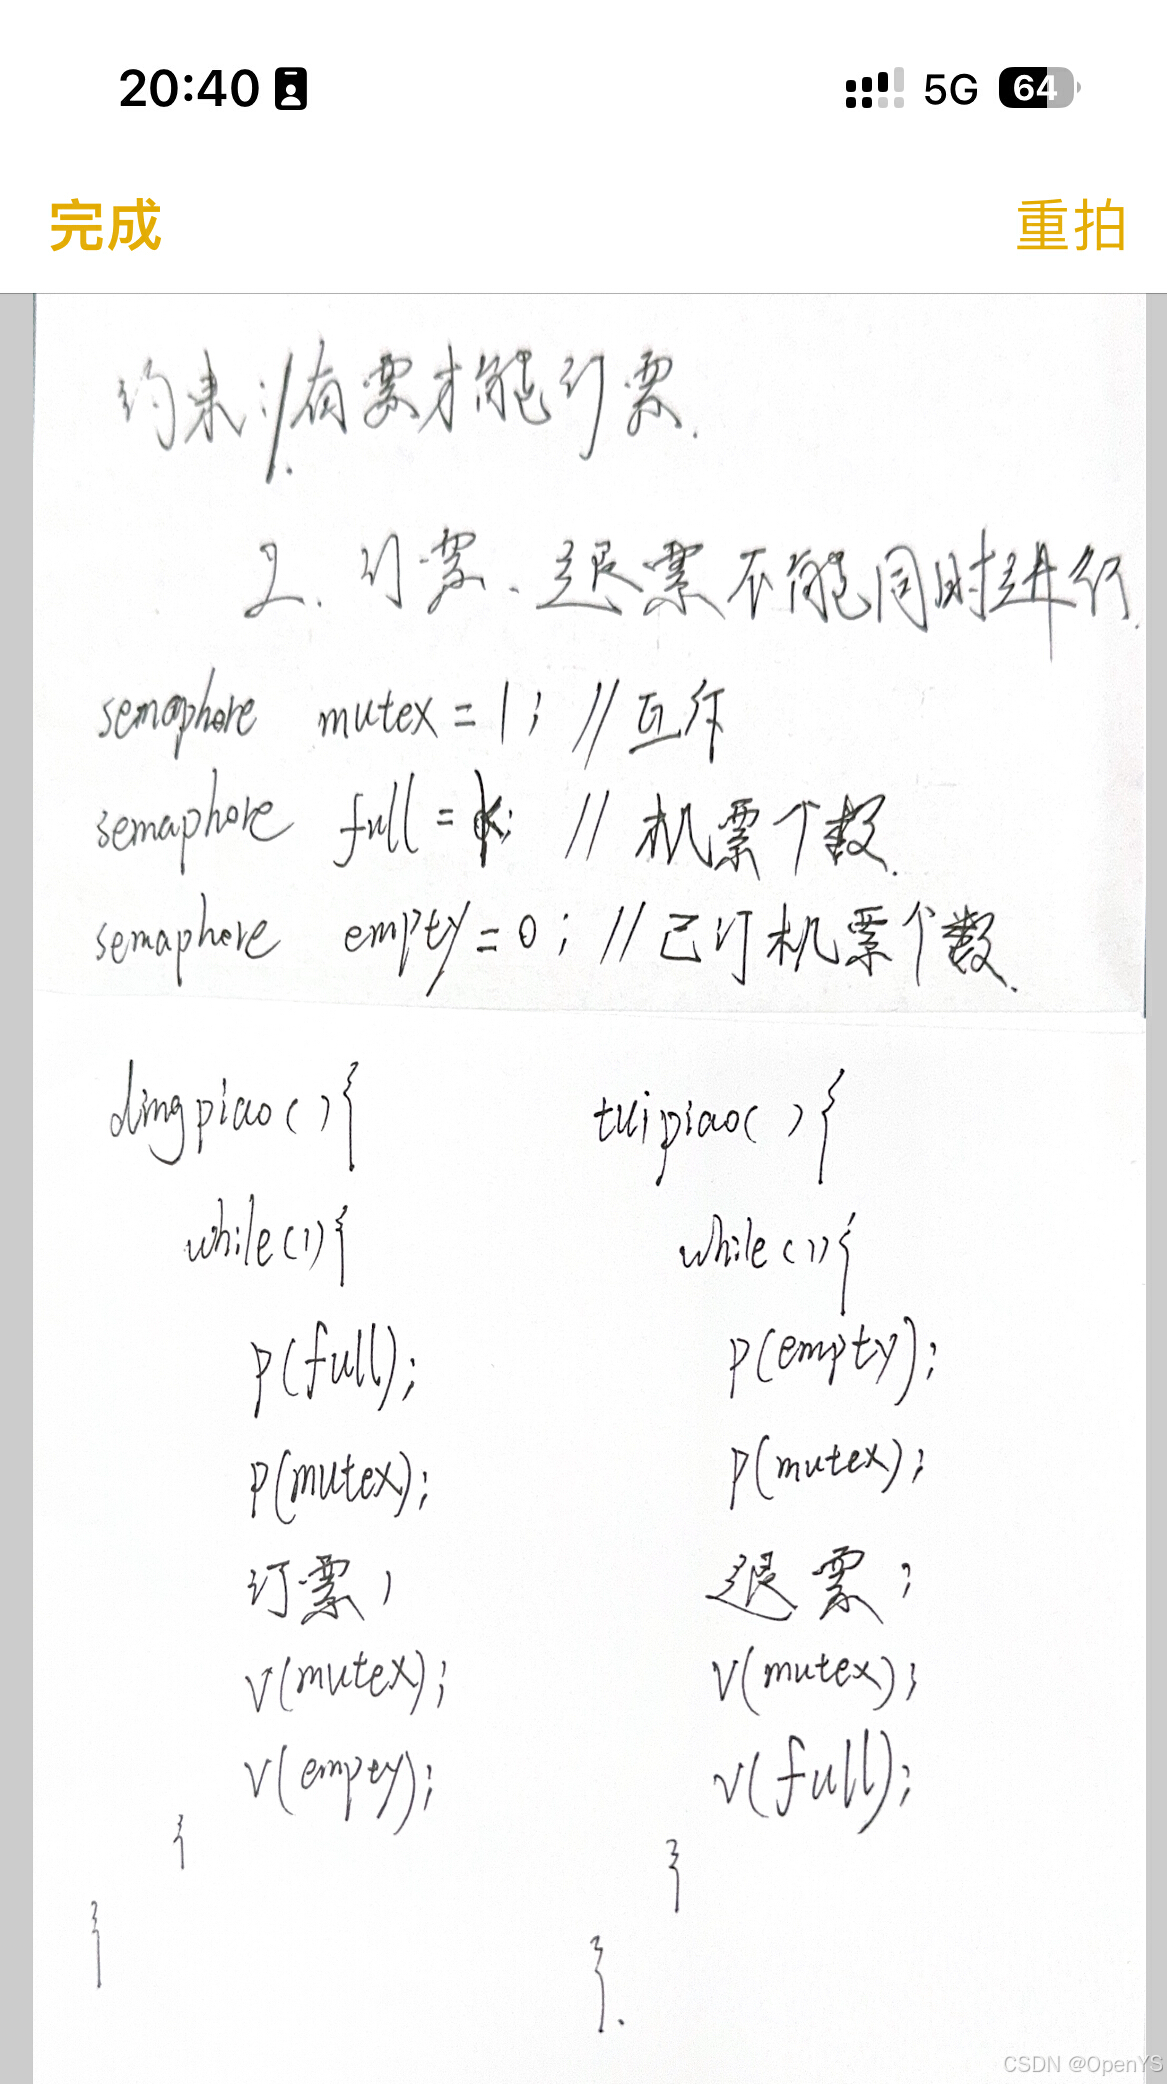 20:40 5G 64
完成 重拍
约束:1.有票才能订票.
2.订票、退票不能同时进行.
semaphore mutex=1; //互斥
semaphore full=k; //机票个数.
semaphore empty=0; //已订机票个数.
dingpiao(){
while(1){
p(full);
p(mutex);
订票;
v(mutex);
v(empty);
}
}
tuipiao(){
while(1){
p(empty);
p(mutex);
退票;
v(mutex);
v(full);
}
}.
CSDN @OpenYS